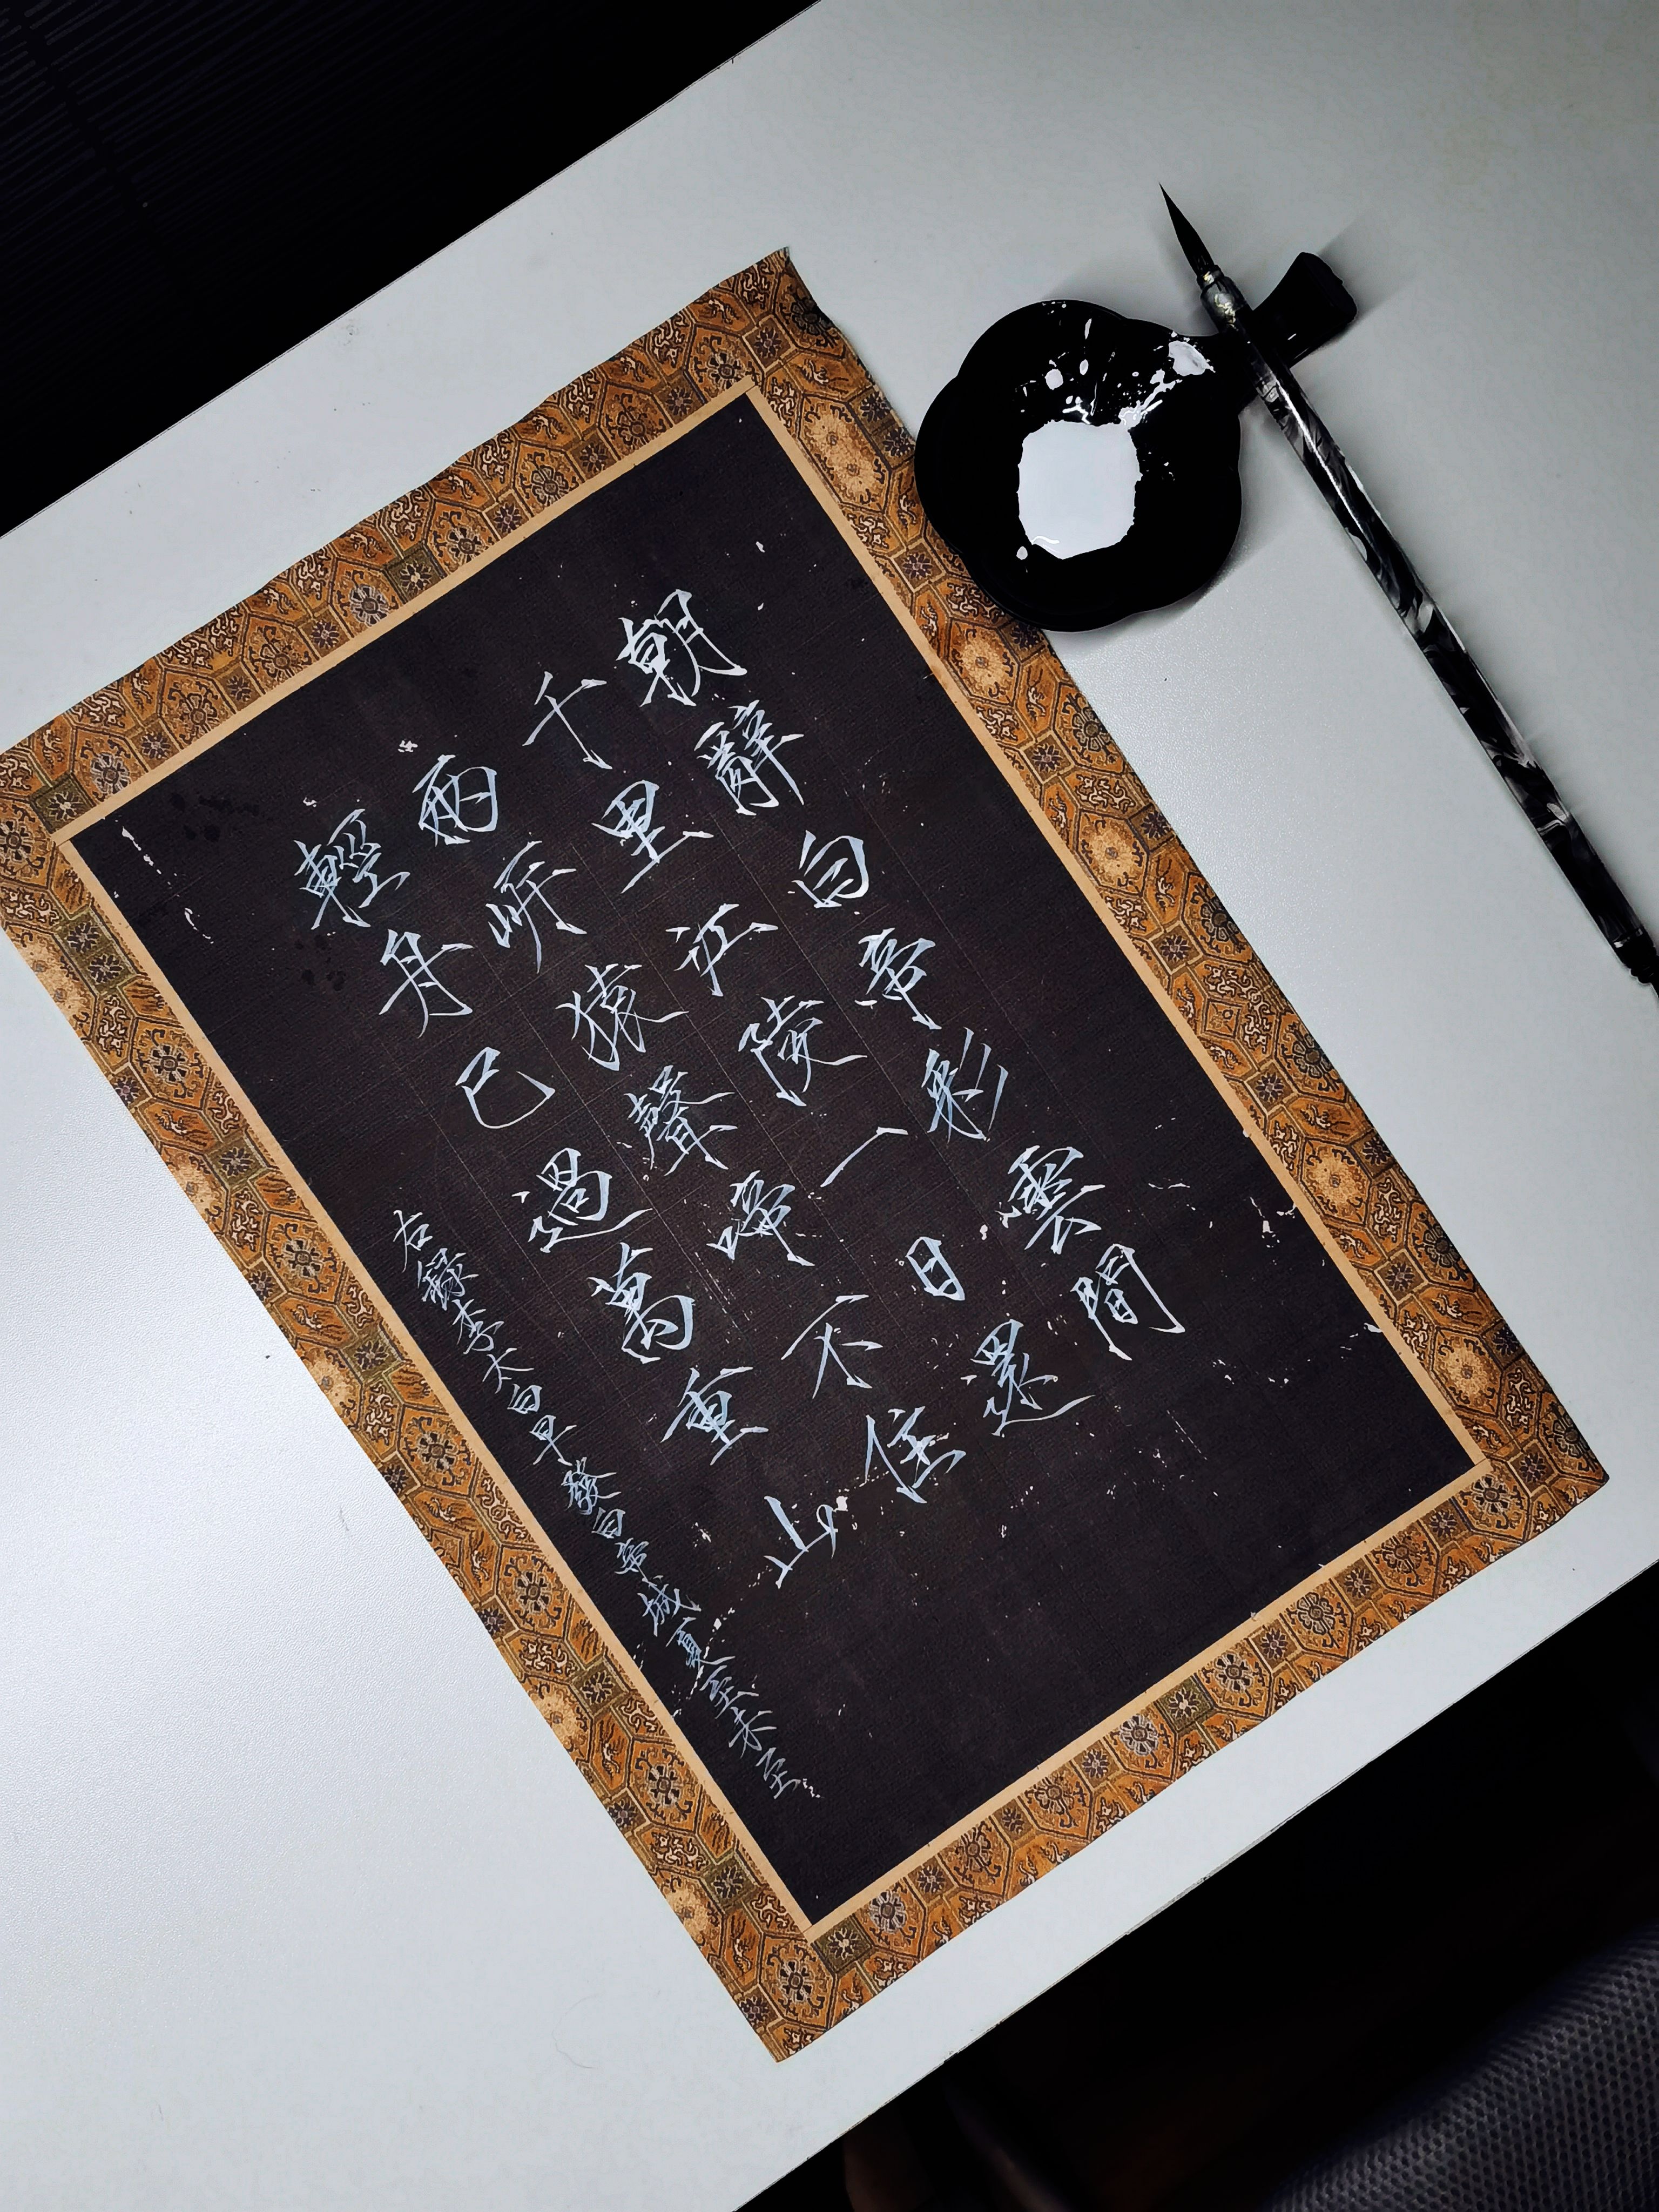 朝辭白帝彩雲間
千里江陵一日還
兩岍猿聲啼不住
輕舟已過萬重山
右錄李太白早發白帝城夏至未至